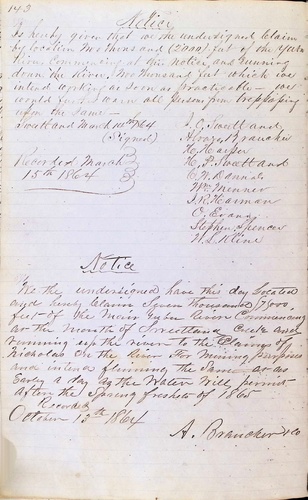 143
Notice
Is hereby given that we the undersigned Claim
by location Two thousand (2000) feet of the Yuba
River Commencing at this Notice and running
down the River, Two thousand feet which we
intend working as soon as practicable — we
would forewarn all persons from trespassing
upon the same —
Sweetland March 14th 1864
(Signed)
J. G. Sweetland
Alonzo Brancher
H. Harper
H. P. Sweetland
E. W. Dannals
Wm Menner
J. R. Harman
O. Evans
Stephen Spencer
W. L. Kline
Recorded March
15th 1864
Notice
We the undersigned have this day Located
and hereby Claim Seven thousand 7,000
feet of the Main Yuba River Commencing
at the Mouth of Sweetland Creek and
running up the river to the Claims of
Nicholas on the River For Mining purposes
and intend fluming the Same at as
Early a day as the Water Will permit
after the Spring freshets of 1865
Recorded
October 13th 1864
A. Brancher & Co